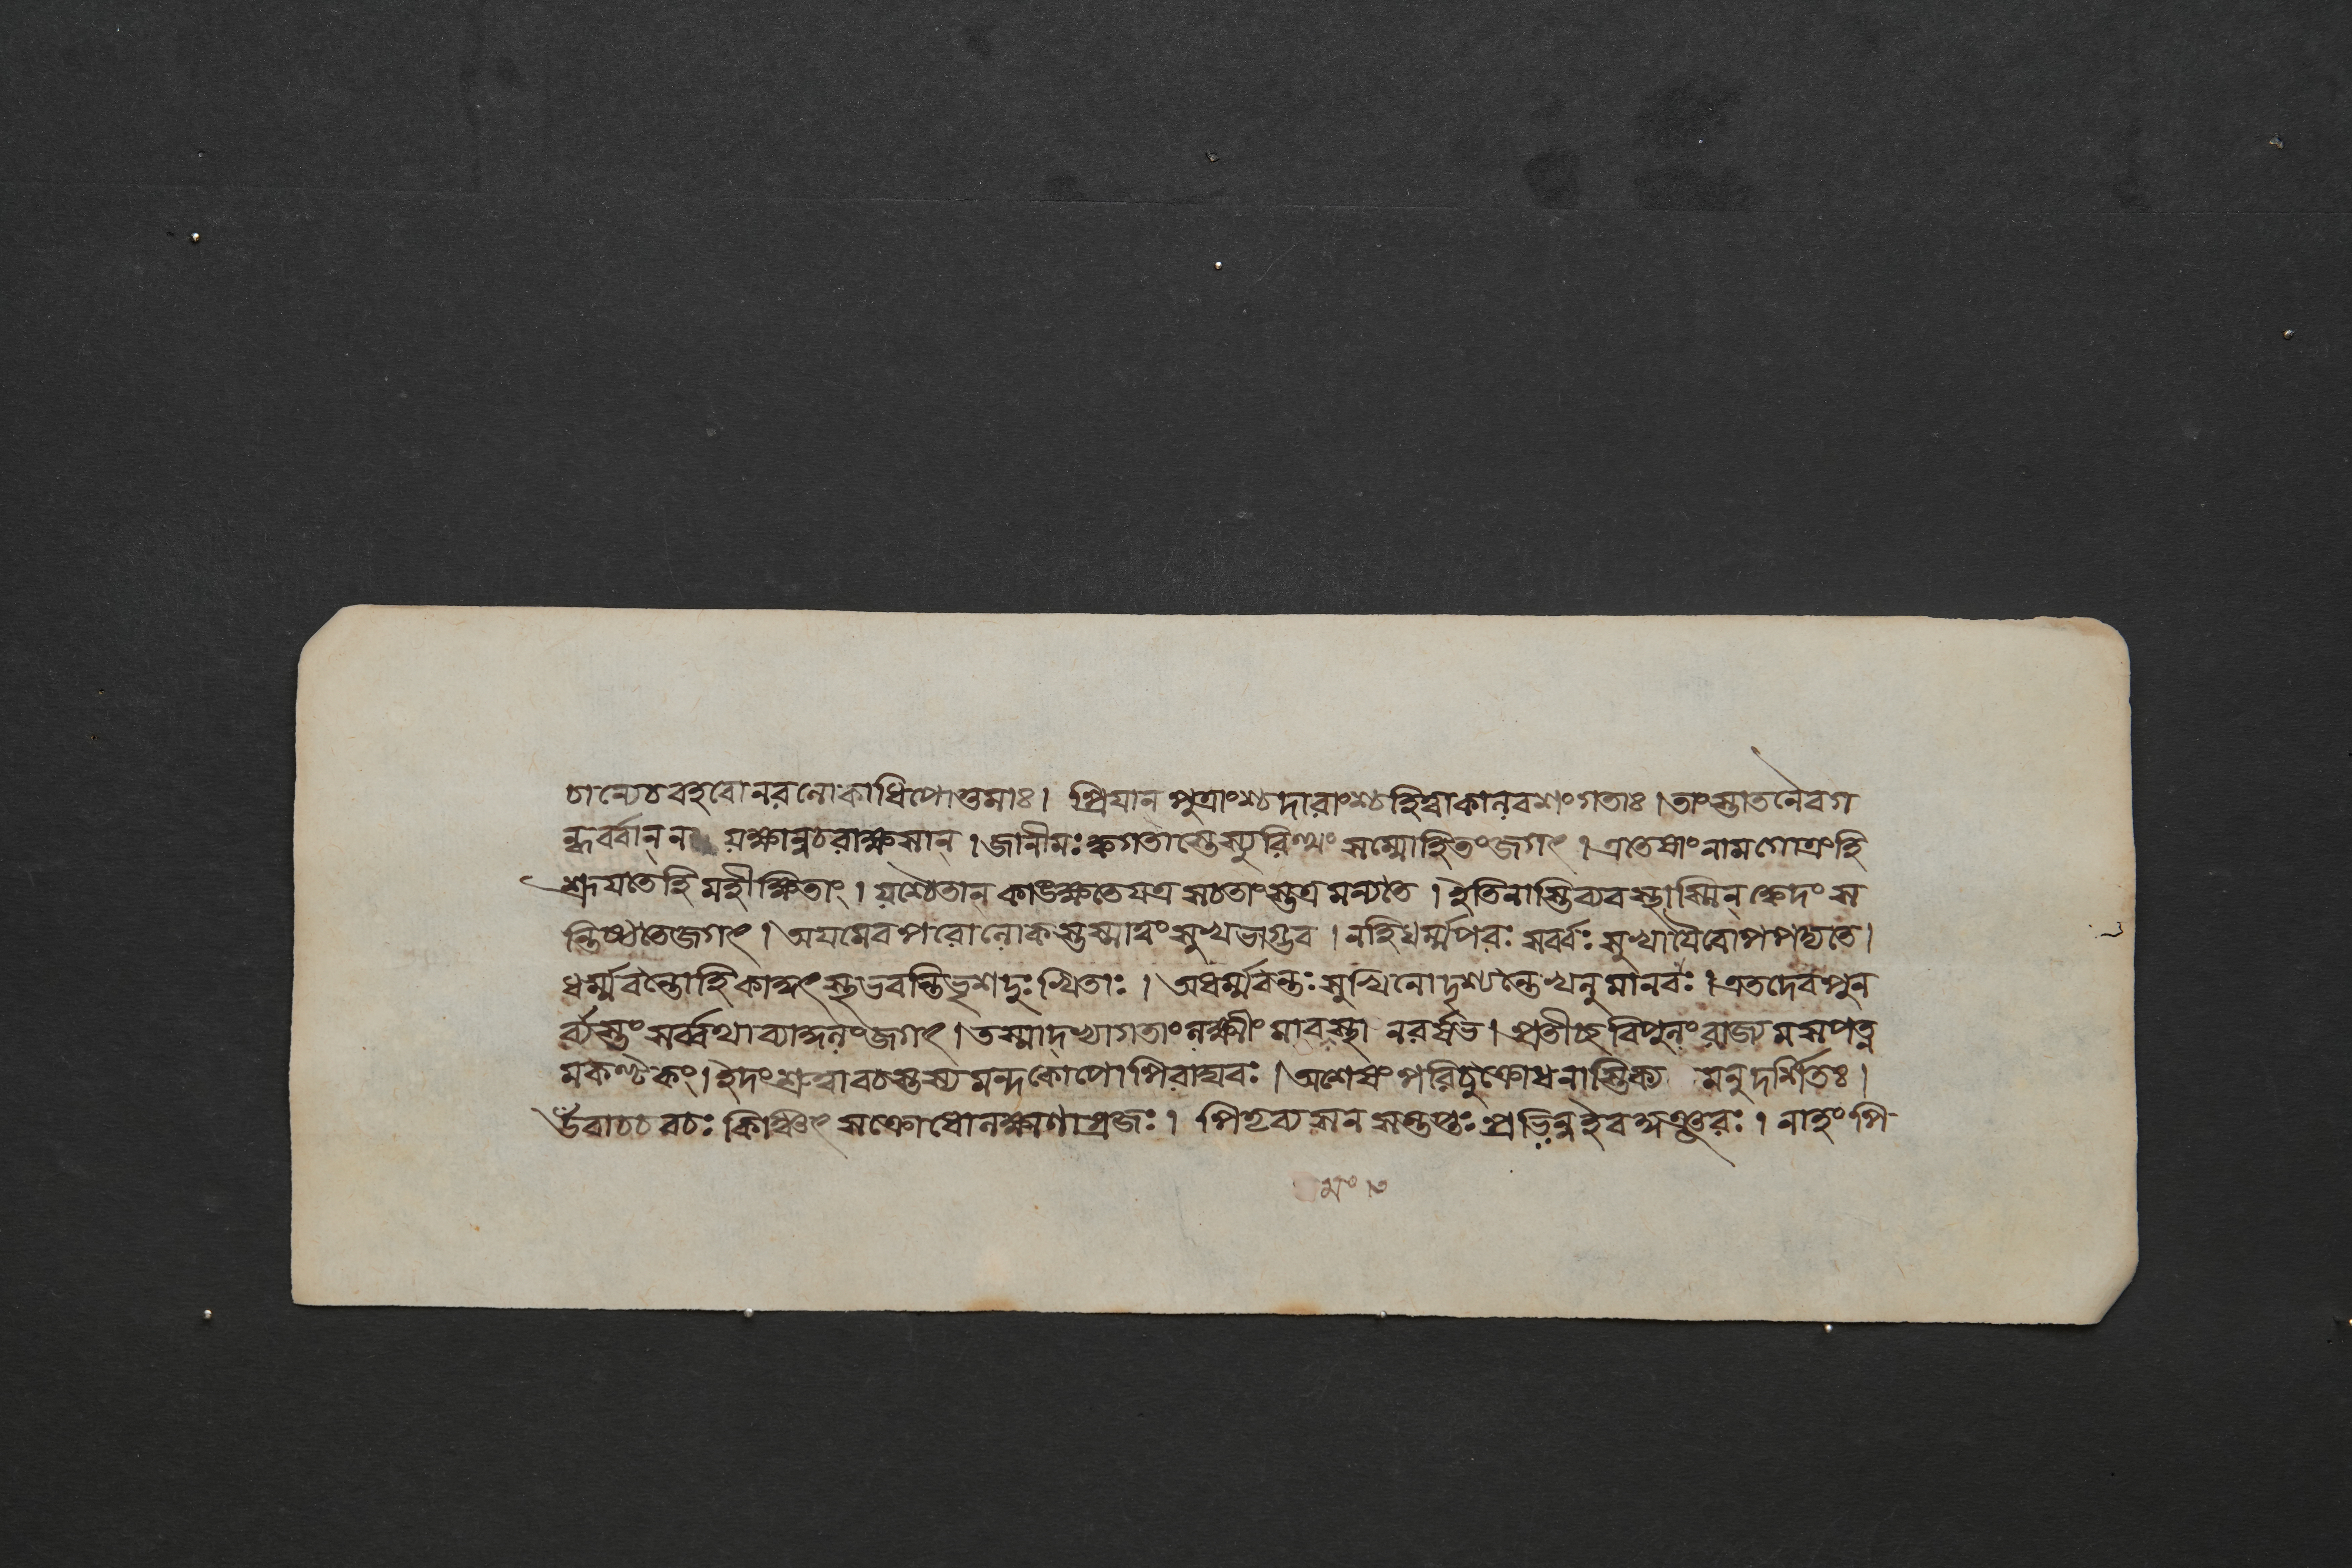 চান্যেচবহবোনরলোকাধিপোত্তমাঃ। প্রিযান্ পুত্রাংশ্চদারাংশ্চহিত্বাকালবশংগতাঃ। তাংস্তাতনৈবগ
ন্ধর্ব্বান্ন যক্ষান্নচরাক্ষসান্। জানীমঃ ক্বগতাস্তেস্যুরিত্থং সম্মোহিতংজগৎ। এতেষাং নামগোত্রংহি
শ্রূযতেহি মহীক্ষিতাং। যশ্চৈতান্ কাঙক্ষতেযত্র সচতাংস্তত্র মন্যতে। ইতিনাস্তিব্যবস্থাস্মিন্ ক্বেদং স
ন্তিষ্ঠতেজগৎ। অযমেবপরোলোকস্তস্মাত্ত্বং সুখভাগ্ভব। নহিধর্ম্মপরঃ সর্ব্বঃ সুখাযৈবোপপদ্যতে।
ধর্ম্মবন্তোহিকাকুৎস্থভবন্তিভৃশদুঃখিতাঃ। অধর্ম্মবন্তঃ সুখিনোদৃশ্যন্তেখলুমানবঃ। এতদেবপুন
র্ব্যস্তং সর্ব্বথাব্যাকুলংজগৎ। তস্মাদভ্যাগতাংলক্ষ্মীং মাবস্থা নরর্ষভ। প্রতীচ্ছবিপুলংরাজ্যমসপত্ন
মকণ্টকং। ইদংশ্রুত্বাবচস্তস্য মন্দকোপোপিরাঘবঃ। অশেষং পরিচুক্রোধনাস্তিক্য মনুদর্শিতঃ।
উবাচচবচঃ কিঞ্চিৎ সক্রোধোলক্ষ্মণাগ্রজঃ। পিতৃব্যসনসন্তপ্তঃ প্রভিন্নইবকুঞ্জরঃ। নাহং পি